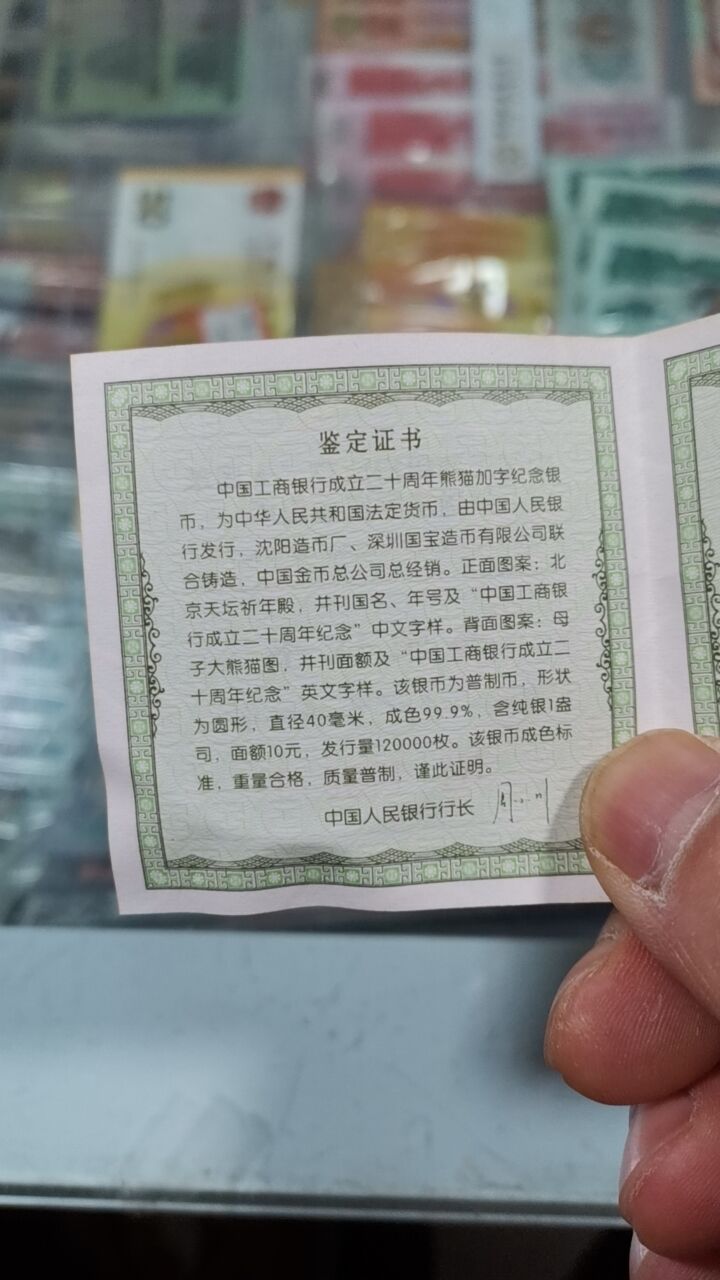 鉴定证书
中国工商银行成立二十周年熊猫加字纪念银
币，为中华人民共和国法定货币，由中国人民银
行发行，沈阳造币厂、深圳国宝造币有限公司联
合铸造，中国金币总公司总经销。正面图案：北
京天坛祈年殿，并刊国名、年号及“中国工商银
行成立二十周年纪念”中文字样。背面图案：母
子大熊猫图，并刊面额及“中国工商银行成立二
十周年纪念”英文字样。该银币为普制币，形状
为圆形，直径40毫米，成色99.9%，含纯银1盎
司，面额10元，发行量120000枚。该银币成色标
准，重量合格，质量普制，谨此证明。
中国人民银行行长